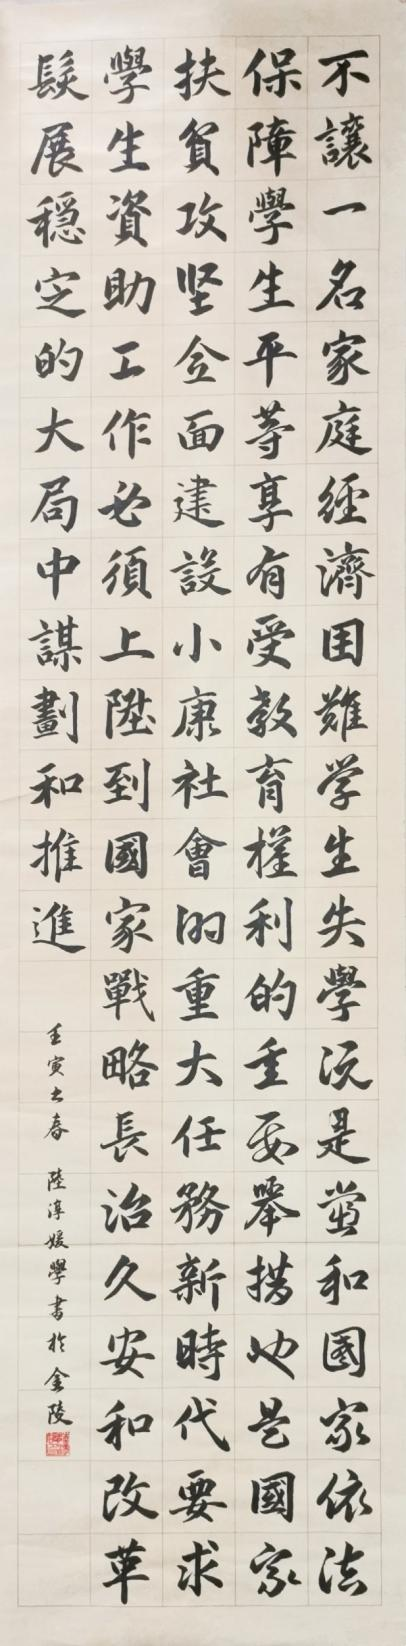 不讓一名家庭經濟困難学生失學况是當和國家依法
保障學生平等享有受教育權利的重要舉措也是國家
扶貧攻坚全面建設小康社會的重大任務新時代要求
學生資助工作必須上陞到國家戰略長治久安和改革
髮展穩定的大局中謀劃和推進
壬寅之春 陸淳媛學書於金陵